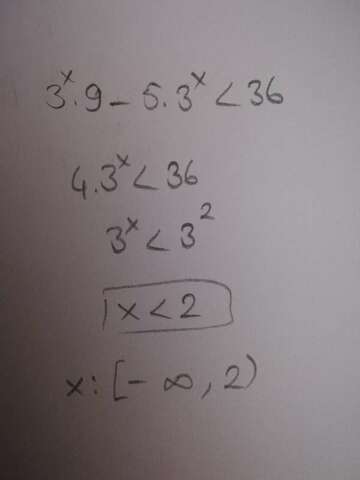 3ˣ.9 - 5.3ˣ < 36
4.3ˣ < 36
3ˣ < 3²
x < 2
x: [- ∞, 2)